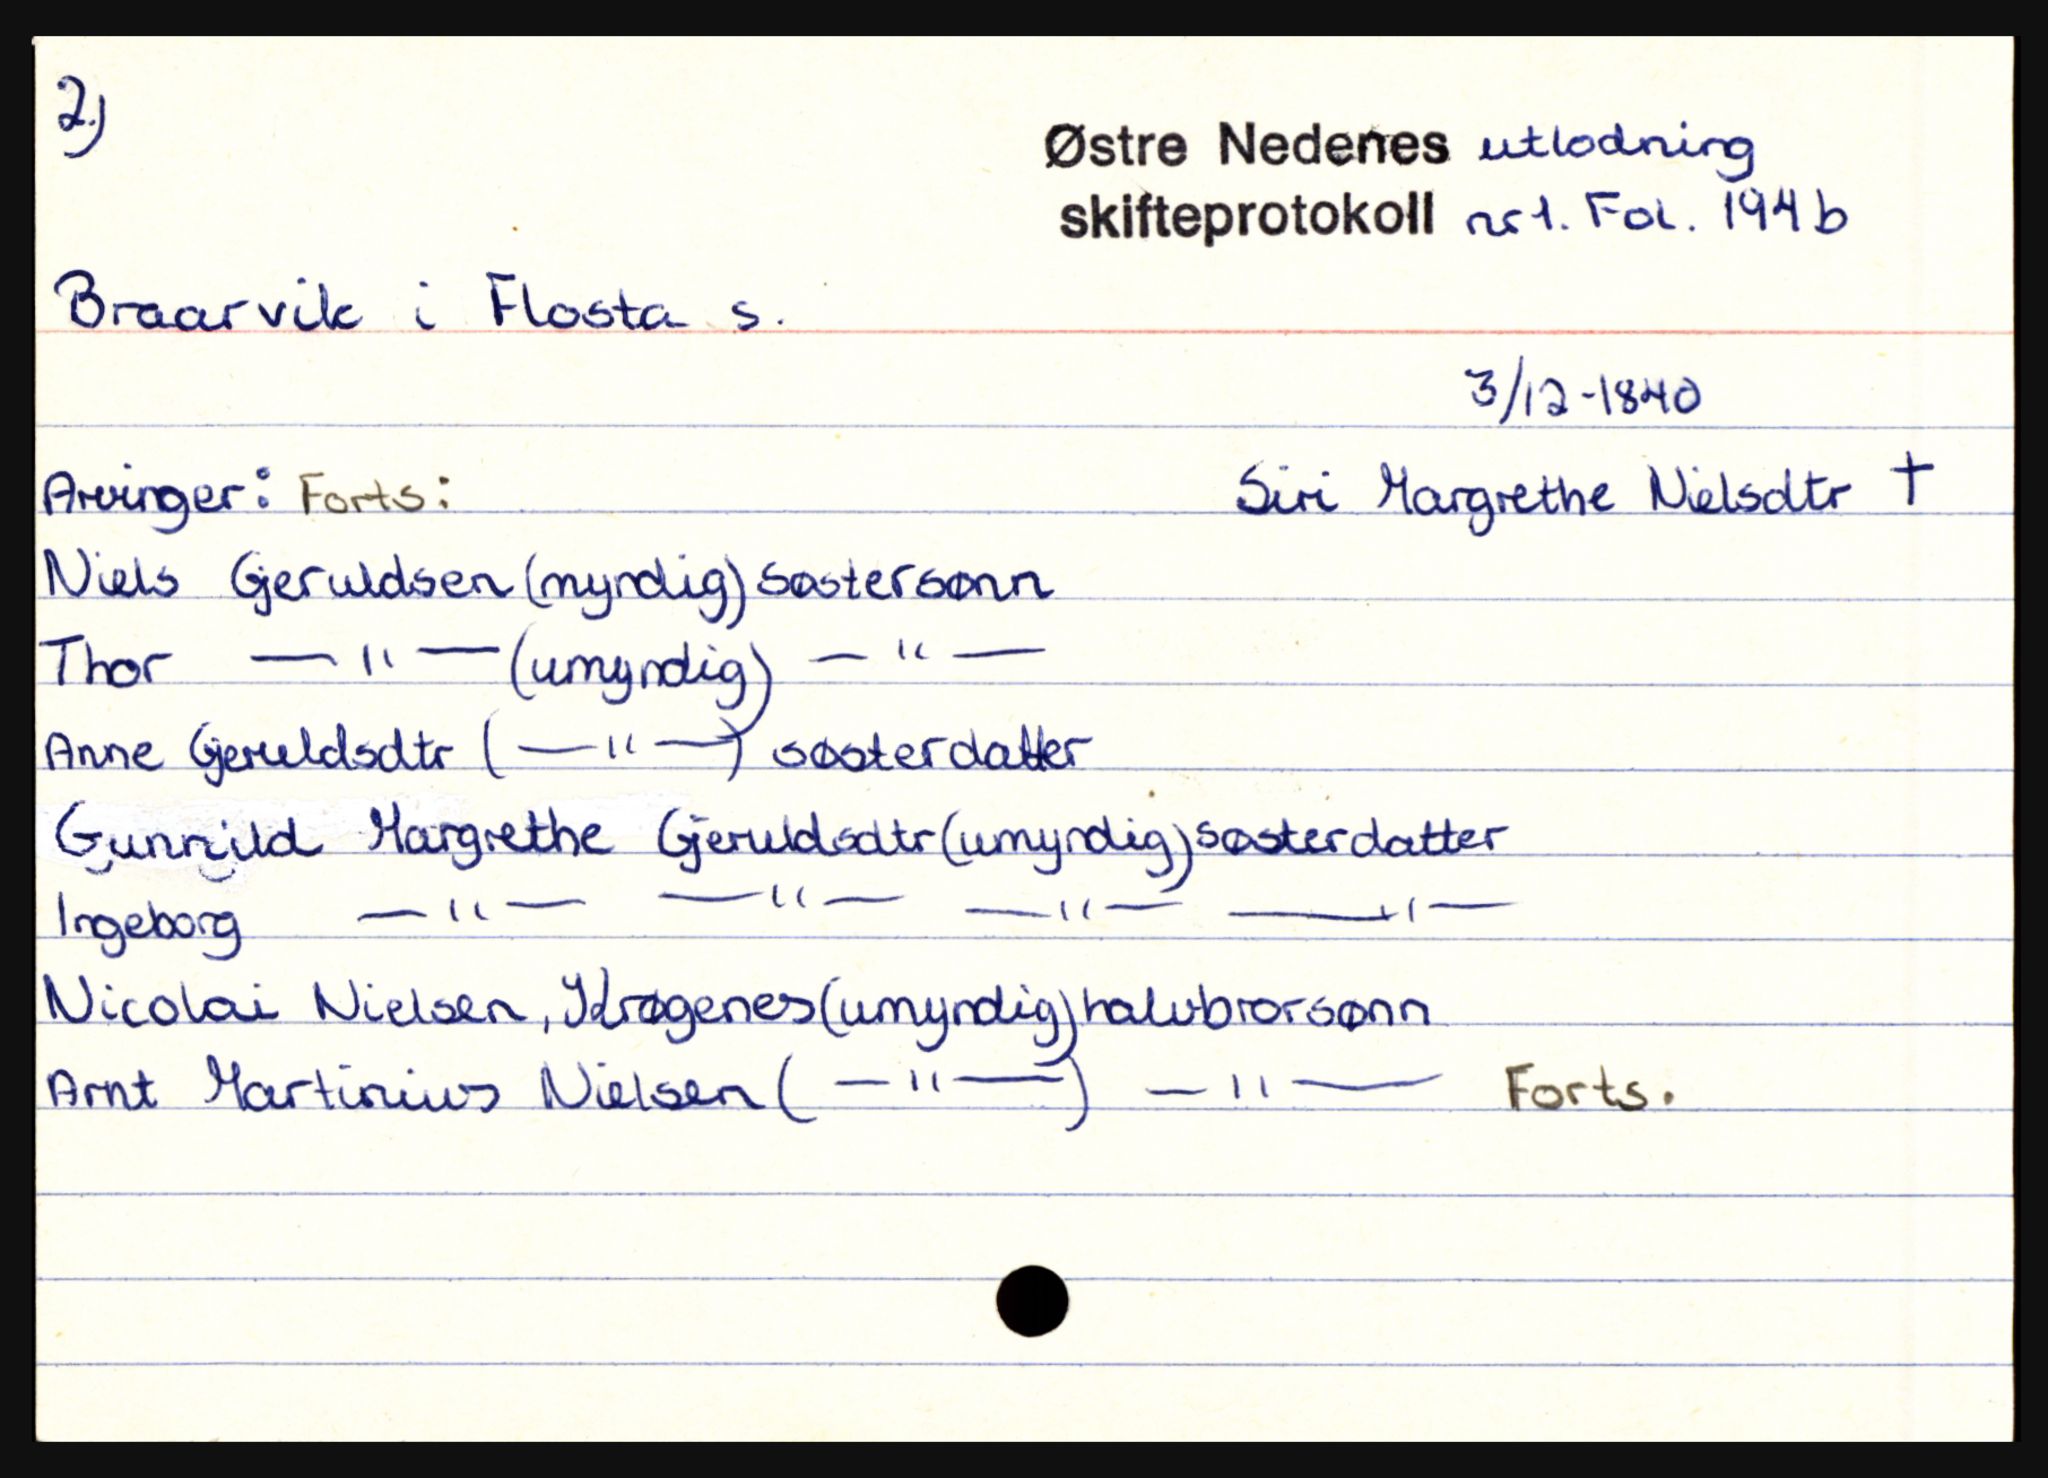 2.)
Østre Nedenes utlodning
skifteprotokoll nr 1. Fol. 194b
Braarvik i Flosta s.
3/12-1840
Arvinger: Forts: Siri Margrethe Nielsdtr †
Niels Gjeruldsen (myndig) søstersønn
Thor —"— (umyndig) —"—
Anne Gjeruldsdtr (—"—) søsterdatter
Gunnild Margrethe Gjeruldsdtr (umyndig) søsterdatter
Ingeborg —"— —"— —"— —"—
Nicolai Nielsen, Krøgenes (umyndig) halvbrorsønn
Arnt Martinius Nielsen (—"—) —"— Forts.